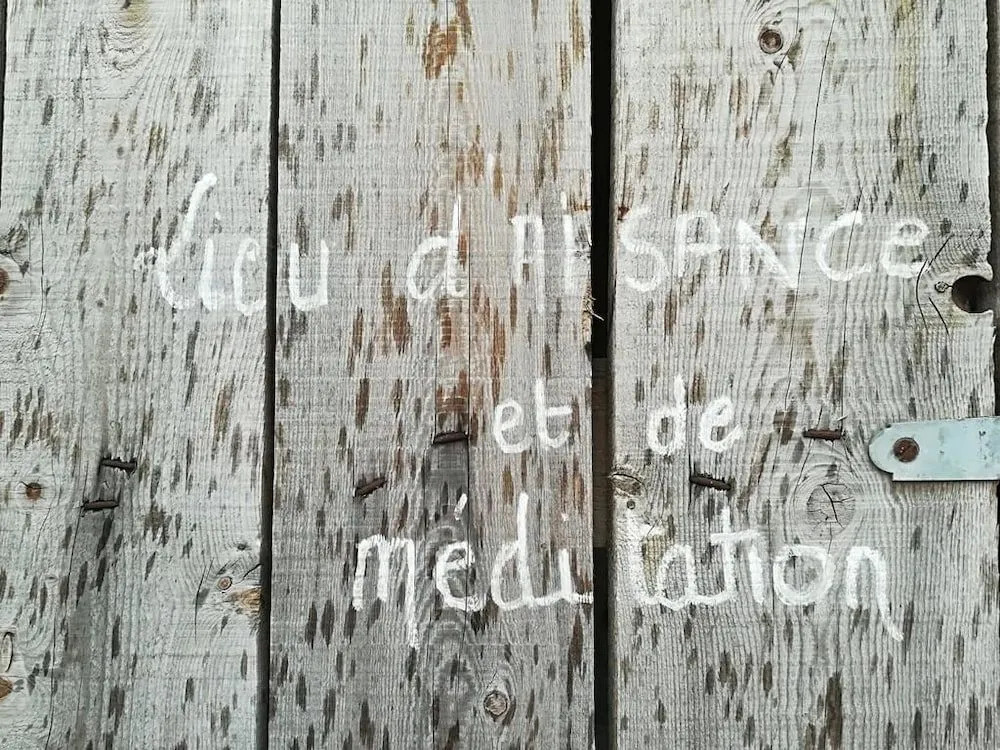 lieu d'AISANCe
et de
méditation